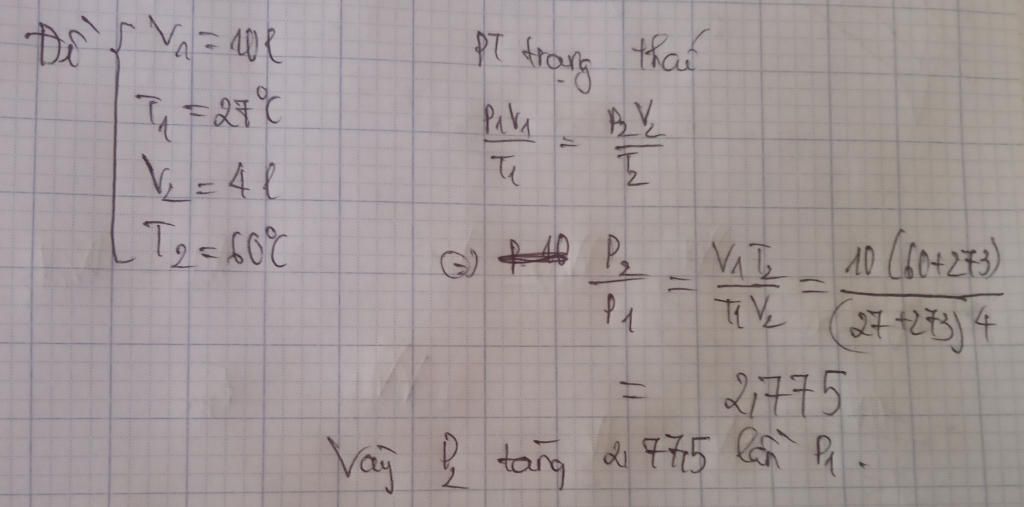 Đề { V₁ = 10l
T₁ = 27°C
V₂ = 4l
T₂ = 60°C
PT trạng thái
P₁V₁/T₁ = P₂V₂/T₂
⇔ P₂/P₁ = V₁T₂/T₁V₂ = 10(60+273)/(27+273)4
= 2,775
Vậy P₂ tăng 2,775 lần P₁.